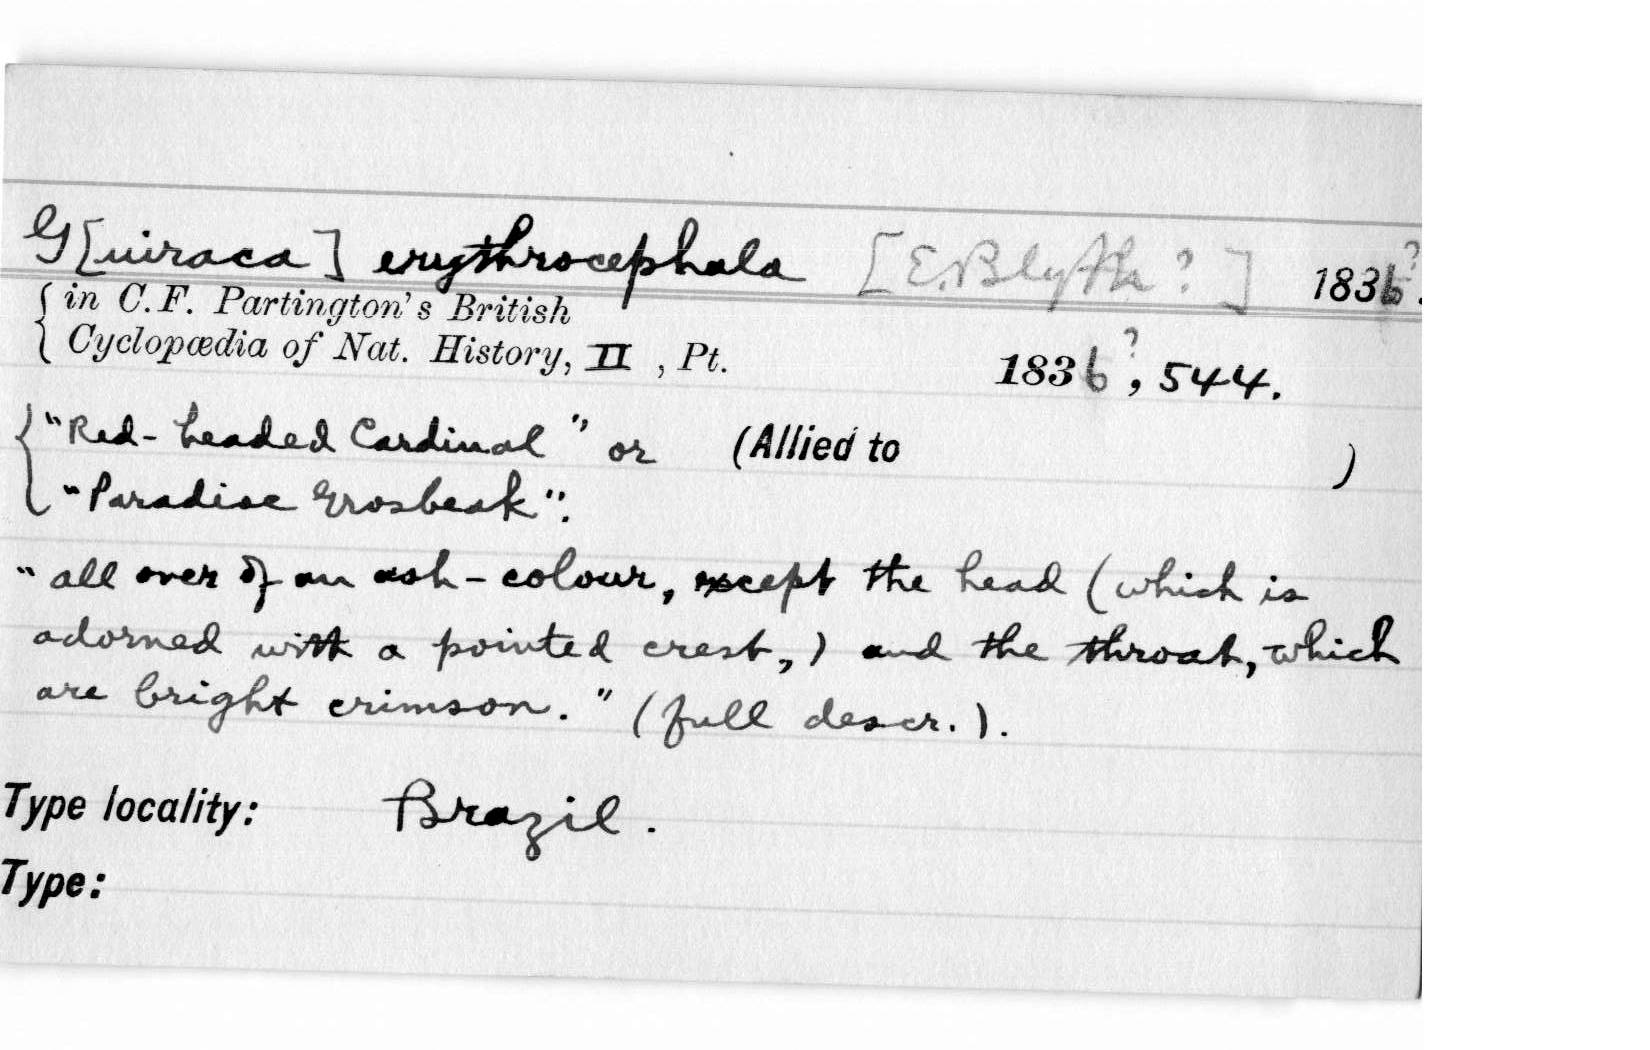 G[uiraca] erythrocephala [E. Blyth?] 1836?.
in C.F. Partington's British
Cyclopædia of Nat. History, II, Pt. 1836?, 544.
"Red-headed Cardinal" or (Allied to )
"Paradise Grosbeak".
"all over of an ash-colour, except the head (which is
adorned with a pointed crest,) and the throat, which
are bright crimson." (full descr.).
Type locality: Brazil.
Type: